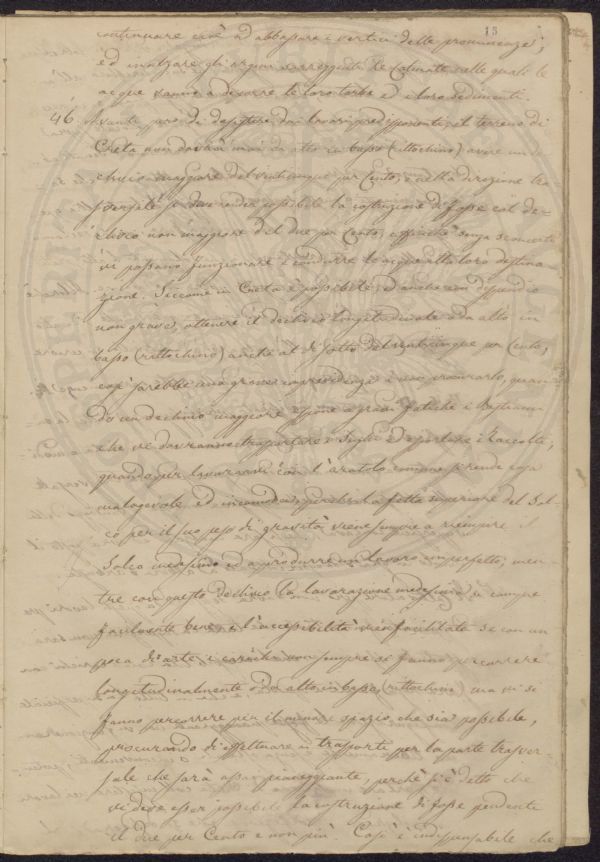 15
continuare cioè ad abbassare i vertici delle prominenze;
ed innalzare gli argini e arreggiati le Colmate nelle quali le
acque vanno a deporre le loro torbe ed i loro sedimenti.
46 Avanti però di desistere dai lavori predisponenti, il terreno di
Creta non dovrà mai da alto in basso (rittochino) avere un de
clivio maggiore del venticinque per Cento, e nella direzione tra=
sversale si deve rendere possibile la costruzione di fosse col de=
clivio non maggiore del due per Cento, affinchè senza sconcerti
vi possano funzionare e condurre le acque alla loro destina
zione. Siccome in Creta è possibile, ed anche con dispendio
non grave, ottenere il declivio longitudinale o da alto in
basso (rittochino) anche al di sotto del venticinque per Cento,
così sarebbe una grave imprevidenza il non procurarlo, quan
do un declivio maggiore espone a gravi fatiche i Bestiami
che vi dovranno trasportare i Sughi ed esportare i Raccolti;
quando per lavorarvi con l'aratolo comune si rende cosa
malagevole ed incomoda, poichè la fetta superiore del Sol=
co per il suo peso di gravità viene sempre a riempire il
Solco medesimo ed a produrre un lavoro imperfetto; men
tre con questo declivio la lavorazione medesima si compie
facilmente bene, e l'accessibilità vien facilitata se con un
poca di arte i carichi non sempre si fanno percorrere
longitudinalmente o da alto in basso (rittochino) ma vi si
fanno percorrere per il minore spazio che sia possibile,
procurando di effettuare i trasporti per la parte trasver=
sale che sarà assai pianeggiante, perchè si è detto che
vi deve esser possibile la costruzione di fosse pendenti
il due per Cento e non più. Così è indispensabile che